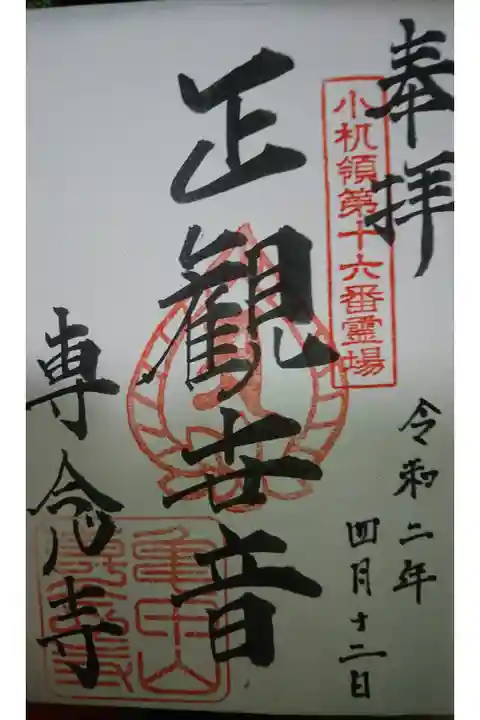 奉拝
小机領第十六番霊場
令和二年
四月十二日
正観世音
専念寺
亀甲山